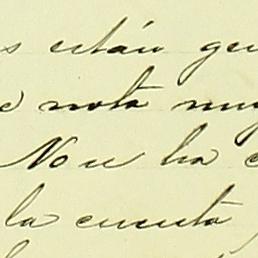 s están ge
e nota muy
No se ha c
la cuenta